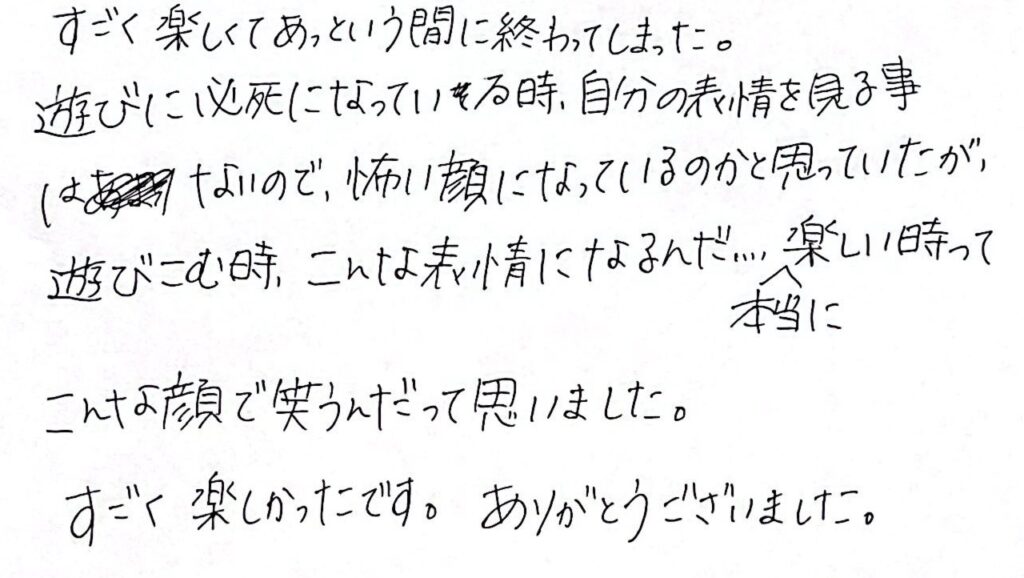 すごく楽しくてあっという間に終わってしまった。
遊びに必死になっている時、自分の表情を見る事
はないので、怖い顔になっているのかと思っていたが、
遊びこむ時、こんな表情になるんだ…。楽しい時って
本当に
こんな顔で笑うんだって思いました。
すごく楽しかったです。ありがとうございました。